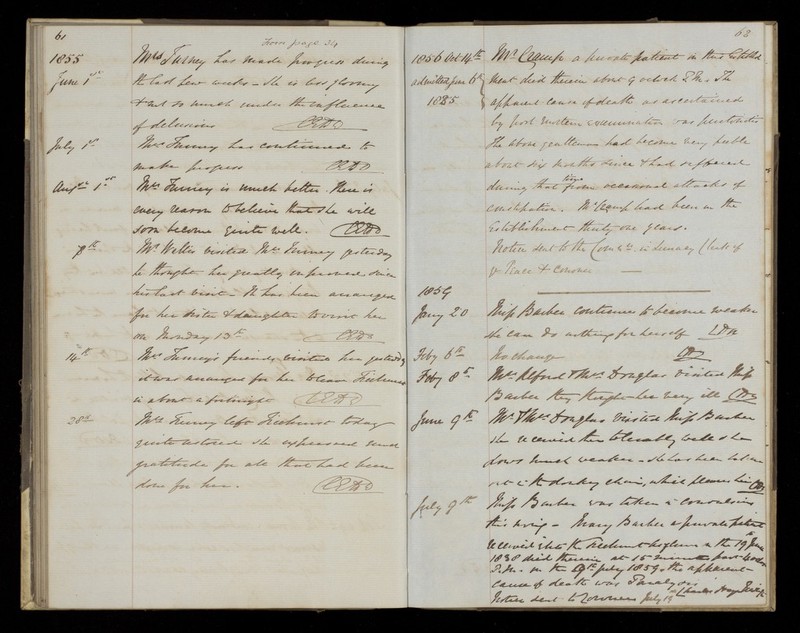 61
From page 34
1855
June 1st
Mrs Turney has made progress during
the last few weeks - She is less gloomy
& not so much under the influence
of delusions
July 1st
Mrs Turney has continued to
make progress
Augst 1st
Mrs Turney is much better. There is
every reason to believe that she will
soon become quite well.
8th
Mr Welles visited Mrs Turney yesterday
he thought her greatly improved since
his last visit - It has been arranged
for her sister & daughter to visit her
on Monday 13th
14th
Mrs Turney's friends visited her yesterday
it was arranged for her to leave Ticehurst
in about a fortnight
28th
Mrs Turney left Ticehurst today
quite restored she expressed much
gratitude for all that had been
done for her.
62
1856 Oct 14th
admitted June 6th
1825
Mr Cramp a private patient in this Establish
ment died therein about 9 oclock P.M. The
apparent cause of death as ascertained
by post mortem examination was peritonitis
The above gentleman had become very feeble
about six months since & had suffered
during that time from occasional attacks of
constipation. Mr Cramp had been in the
Establishment thirty one years.
Notice sent to the Comrs in Lunacy Clerk of
ye Peace & Coroner
1859
Jany 20
Miss Barber continues to become weaker
she can do nothing for herself
Feby 6th
No change
Feby 8th
Mr Alford & Mrs Douglas visited Miss
Barber they thought her very ill
June 9th
Mr & Mrs Douglas visited Miss Barber
she received them tolerably well she
grows much weaker - she has been taken
out in the donkey chair, which pleases her
July 9th
Miss Barber was taken in convulsions
this morng - Mary Barber a private patient
received into the Ticehurst Asylum on the 19th June
1838 died therein at 15 minutes past
P.M. on the 9th July 1859. the apparent
cause of death was Paralysis
Notice sent to Coroner July 19th Charles Hayes Newington